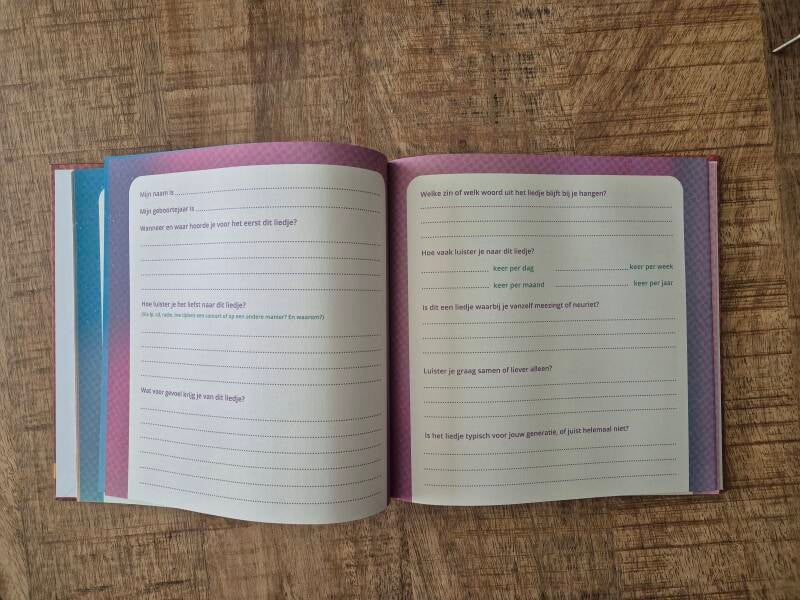 Mijn naam is
Mijn geboortejaar is
Wanneer en waar hoorde je voor het eerst dit liedje?
Hoe luister je het liefst naar dit liedje?
(Via lp, cd, radio, live tijdens een concert of op een andere manier? En waarom?)
Wat voor gevoel krijg je van dit liedje?
Welke zin of welk woord uit het liedje blijft bij je hangen?
Hoe vaak luister je naar dit liedje?
keer per dag keer per week
keer per maand keer per jaar
Is dit een liedje waarbij je vanzelf meezingt of neuriet?
Luister je graag samen of liever alleen?
Is het liedje typisch voor jouw generatie, of juist helemaal niet?